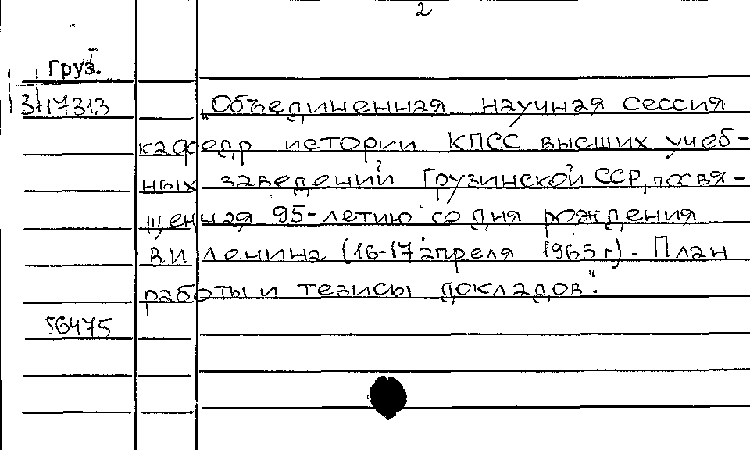 2
Груз.
3/17313 „Объединенная научная сессия
кафедр истории КПСС высших учеб-
ных заведений Грузинской ССР, посвя-
щенная 95-летию со дня рождения
В.И Ленина (16-17 апреля 1965 г). План
работы и тезисы докладов."
56475